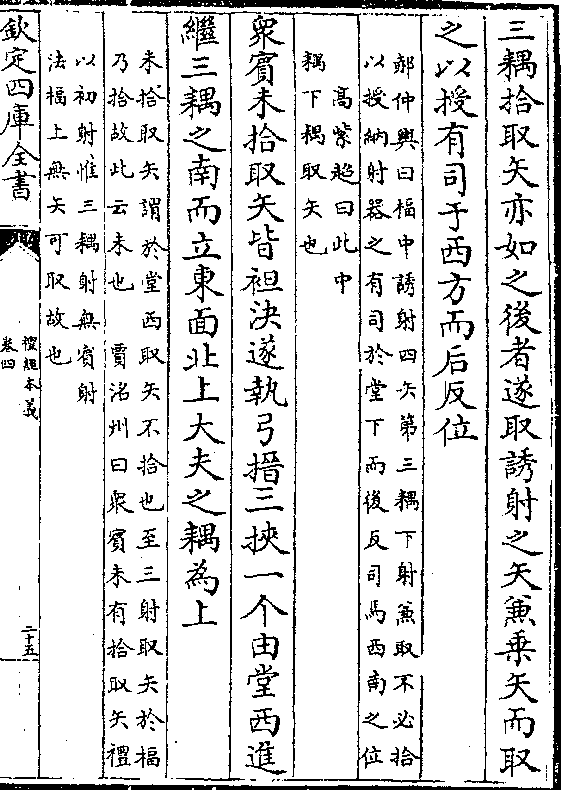 三耦拾取矢亦如之後者遂取誘射之矢兼乗矢而取
之以授有司于西方而后反位
郝仲輿曰楅中誘射四矢第三耦下射兼取不必拾
以授納射器之有司於堂下而後反司馬西南之位
高紫超曰此中
耦下耦取矢也
衆賓未拾取矢皆袒決遂執弓搢三挾一个由堂西進
繼三耦之南而立東面北上大夫之耦為上
未拾取矢謂於堂西取矢不拾也至三射取矢於楅
乃拾故此云未也　賈洺州曰衆賓未有拾取矢禮
以初射惟三耦射無賓射
法楅上無矢可取故也
欽定四庫全書
禮經本義
卷四
二十五